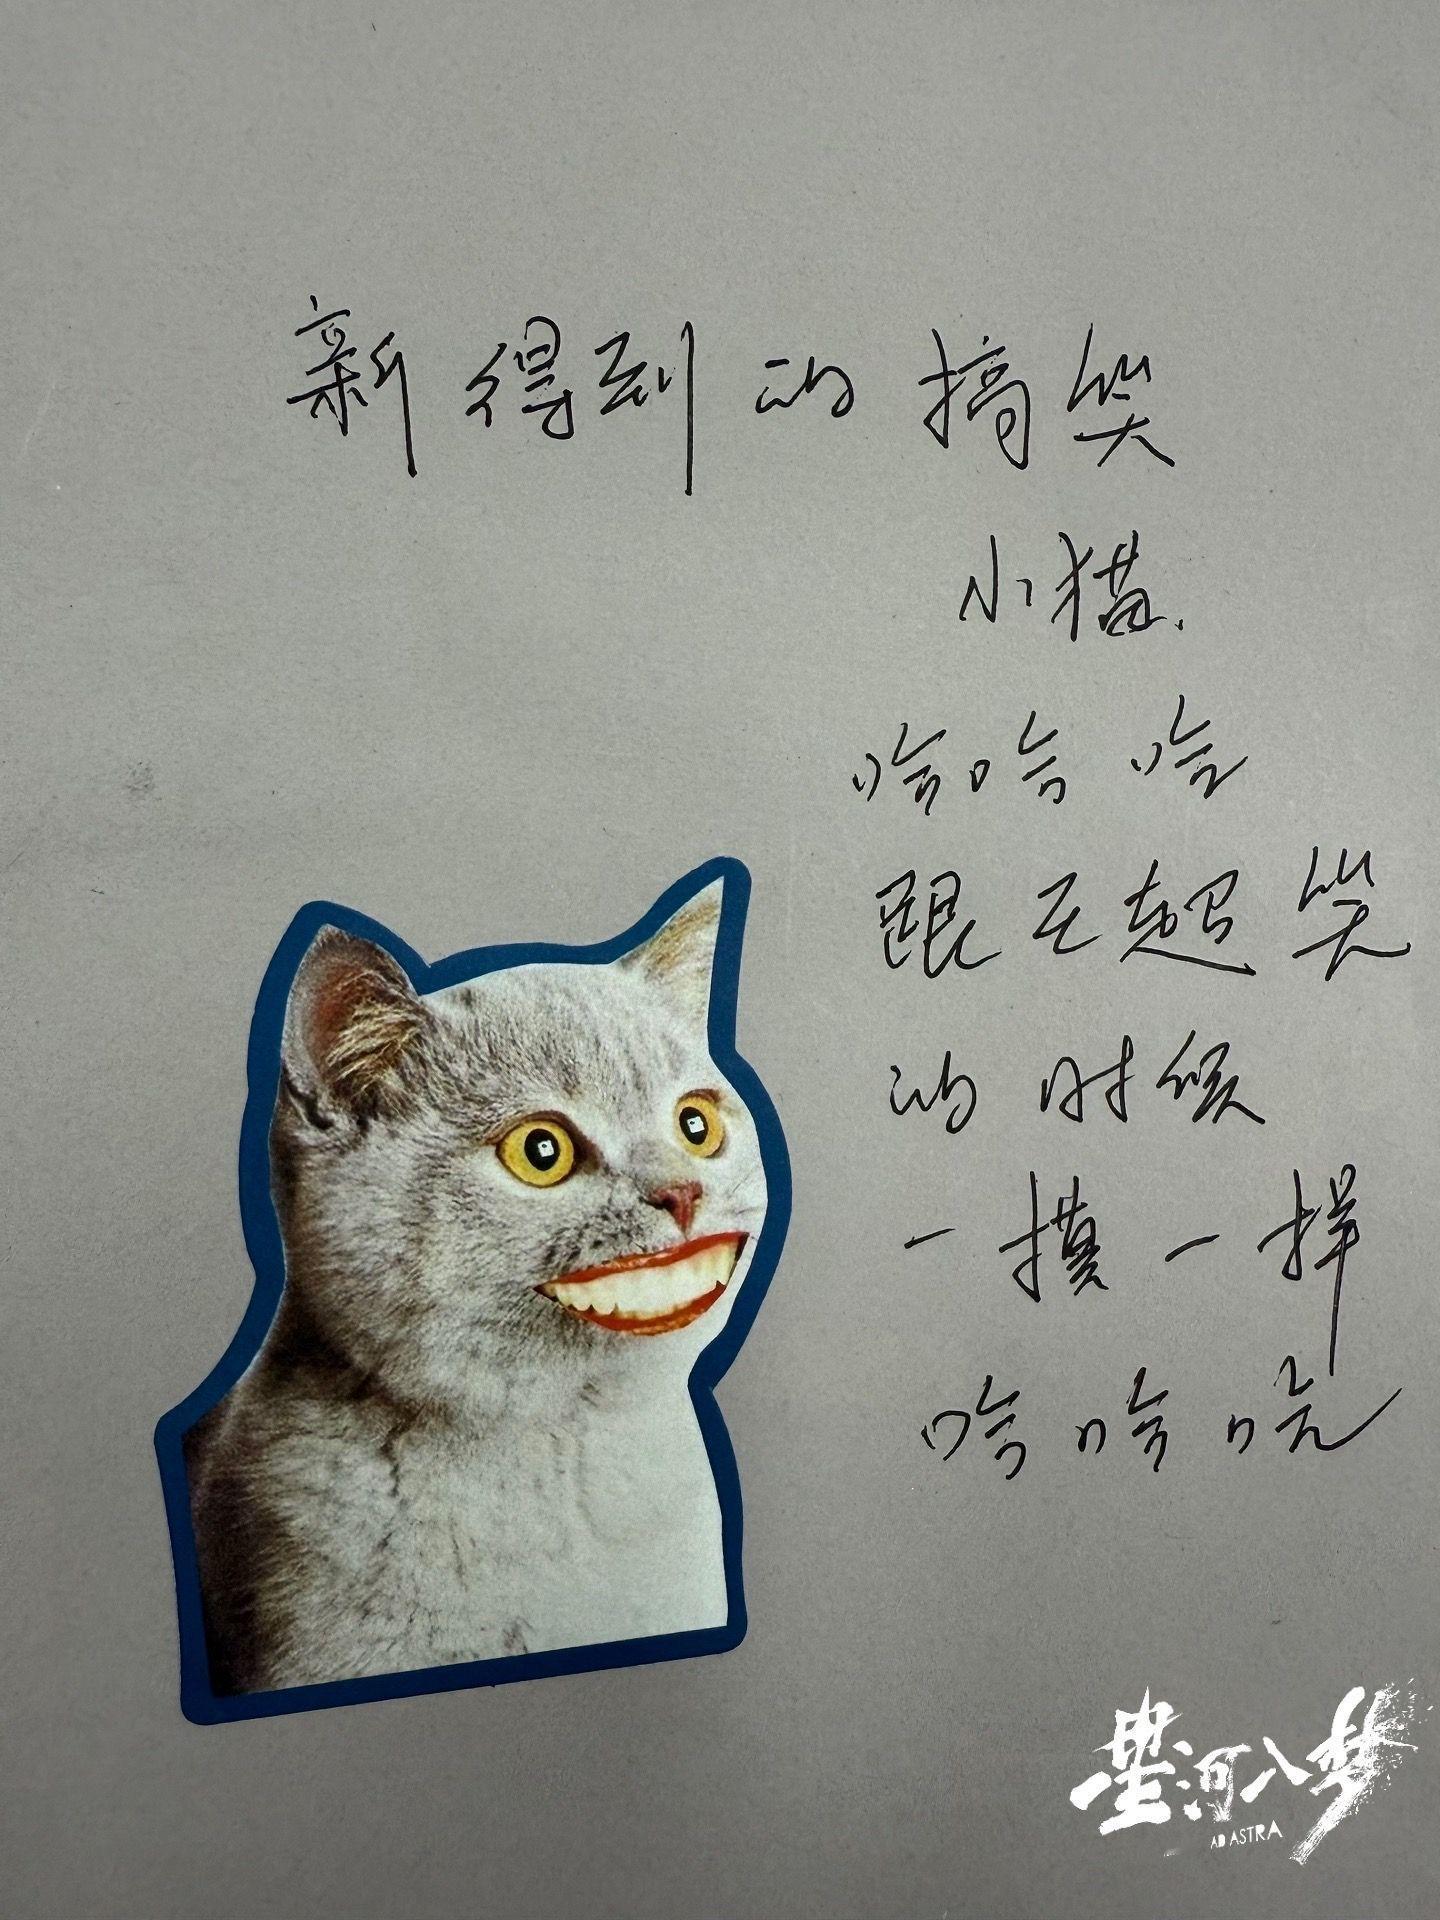 新得到的搞笑
小猫.
哈哈哈
跟王超笑
的时候
一摸一样
哈哈哈
星河入梦
AD ASTRA